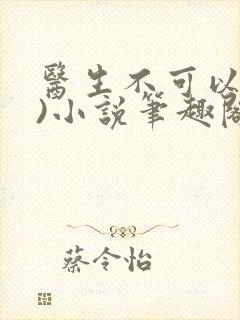 醫生不可以
)小說筆趣閣
蔡令怡